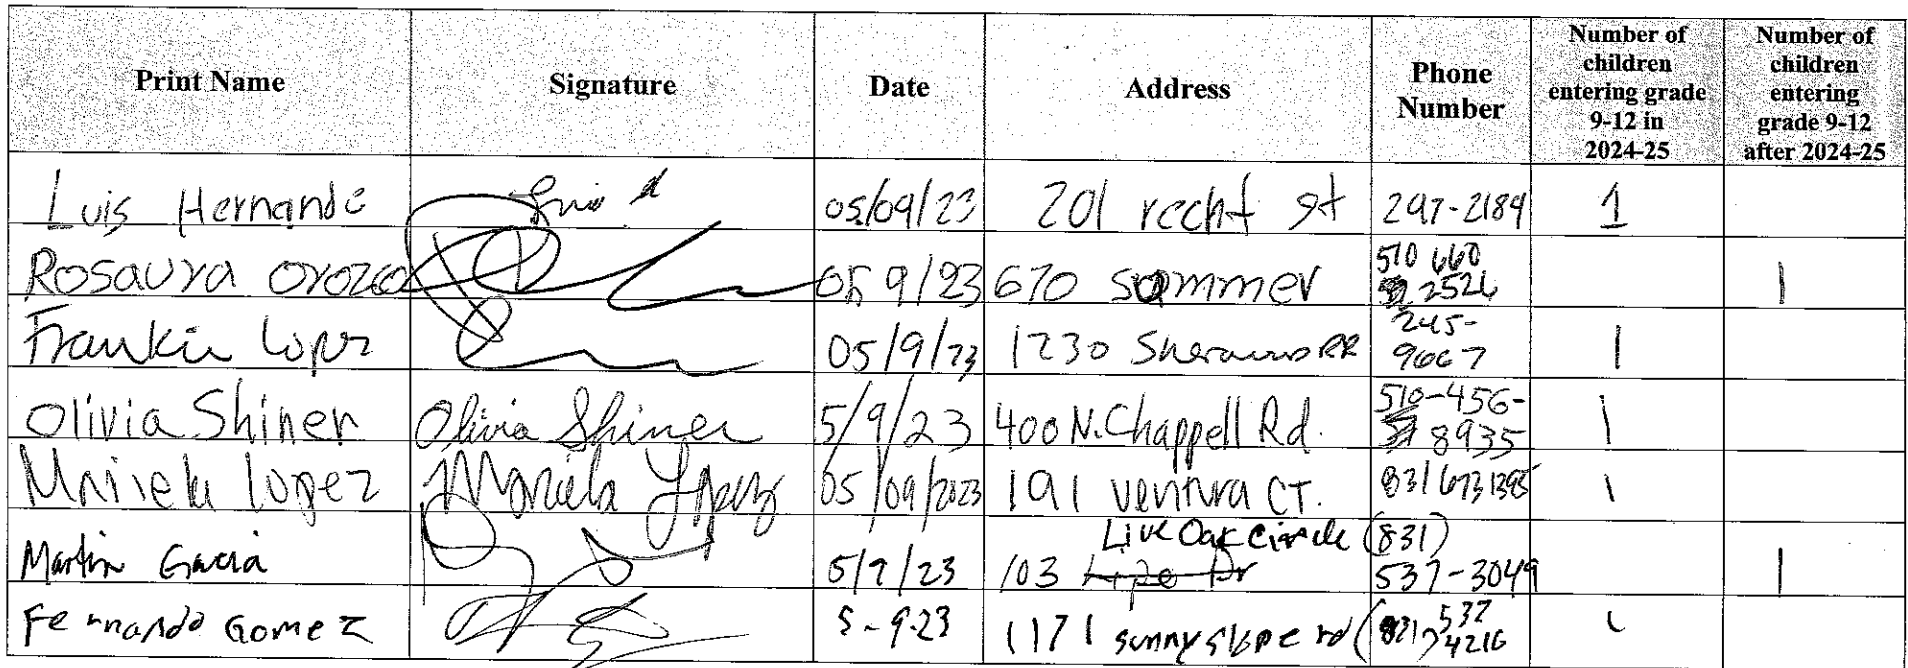 Print Name Signature Date Address Phone Number Number of children entering grade 9-12 in 2024-25 Number of children entering grade 9-12 after 2024-25
Luis Hernande 05/09/23 201 recht st 297-2184 1
Rosaura Orozco 05 9/23 670 sommer 510 660 2526 1
Frankie Lopez 05/9/23 1230 245-9667 1
Olivia Shiner Olivia Shiner 5/9/23 400 N. Chappell Rd. 510-456-8935 1
Mariela lopez Mariela Lopez 05/09/2023 191 ventura CT. 831 673 1395 1
Martin Garcia 5/9/23 103 Live Oak Circle (831) 537-3049 1
Fernando Gomez 5-9-23 1171 sunnyslope rd (831) 537 4216